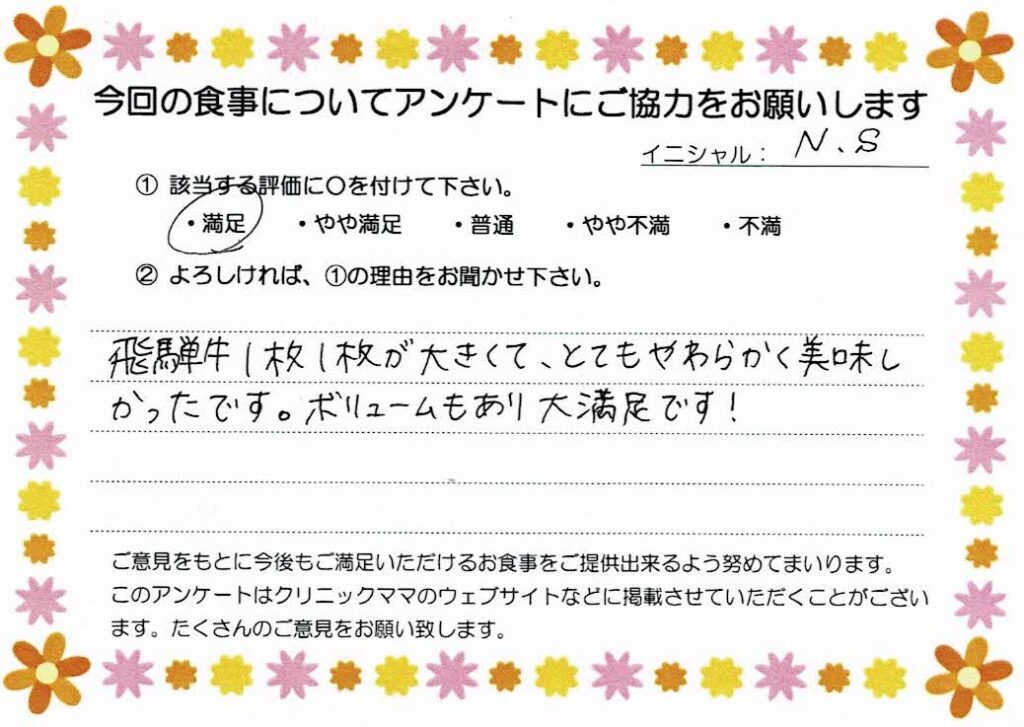 今回の食事についてアンケートにご協力をお願いします
イニシャル： N、S
① 該当する評価に〇を付けて下さい。
・満足 ・やや満足 ・普通 ・やや不満 ・不満
② よろしければ、①の理由をお聞かせ下さい。
飛騨牛1枚1枚が大きくて、とてもやわらかく美味し
かったです。ボリュームもあり大満足です！
ご意見をもとに今後もご満足いただけるお食事をご提供出来るよう努めてまいります。
このアンケートはクリニックママのウェブサイトなどに掲載させていただくことがござい
ます。たくさんのご意見をお願い致します。